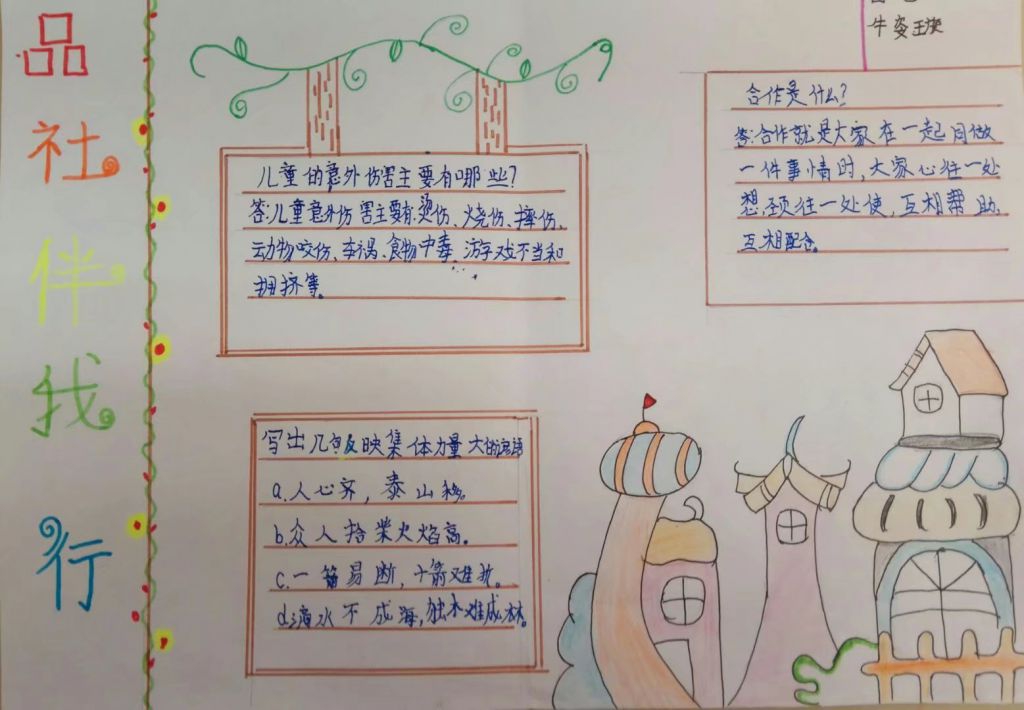 品
社
伴
我
行
牛姿玉
儿童的意外伤害主要有哪些?
答:儿童意外伤害主要有:烫伤、烧伤、摔伤、
动物咬伤、车祸、食物中毒、游戏不当和
拥挤等。
合作是什么?
答:合作就是大家在一起同做
一件事情时,大家心往一处
想,颈往一处使,互相帮助,
互相配合。
写出几句反映集体力量大的
a.人心齐,泰山移。
b.众人拾柴火焰高。
c.一箭易断,十箭难折。
d.滴水不成海,独木难成林。